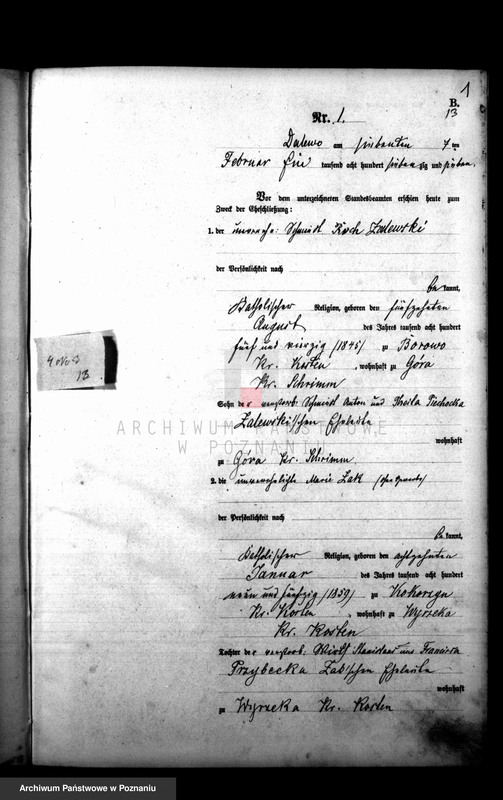 1
B.
13
Nr. 1.
Dalewo am siebenten 7 ten
Februar tausend acht hundert siebenzig und sieben.
Vor dem unterzeichneten Standesbeamten erschien heute zum
Zweck der Eheschließung:
1. der Schmidt Roch Zalewski
der Persönlichkeit nach
be kannt,
Katholischer Religion, geboren den fünfzehnten
August des Jahres tausend acht hundert
fünf und vierzig (1845) zu Borowo
Kr. Kosten, wohnhaft zu Góra
Kr. Schrimm
Sohn der verstorb. Schmidt Anton und Piechocka
Zalewskischen Eheleute
wohnhaft
zu Góra Kr. Schrimm
2. die unverehelichte Marie Zak
der Persönlichkeit nach
be kannt,
Katholischer Religion, geboren den achtzehnten
Januar des Jahres tausend acht hundert
neun und fünfzig (1859) zu
Kr. Kosten, wohnhaft zu Wyrzeka
Kr. Kosten
Tochter der verstorb. Wirth Stanislaus und
Przybecka Eheleute
wohnhaft
zu Wyrzeka Kr. Kosten
13
ARCHIWUM PAŃSTWOWE
W POZNANIU
Archiwum Państwowe w Poznaniu